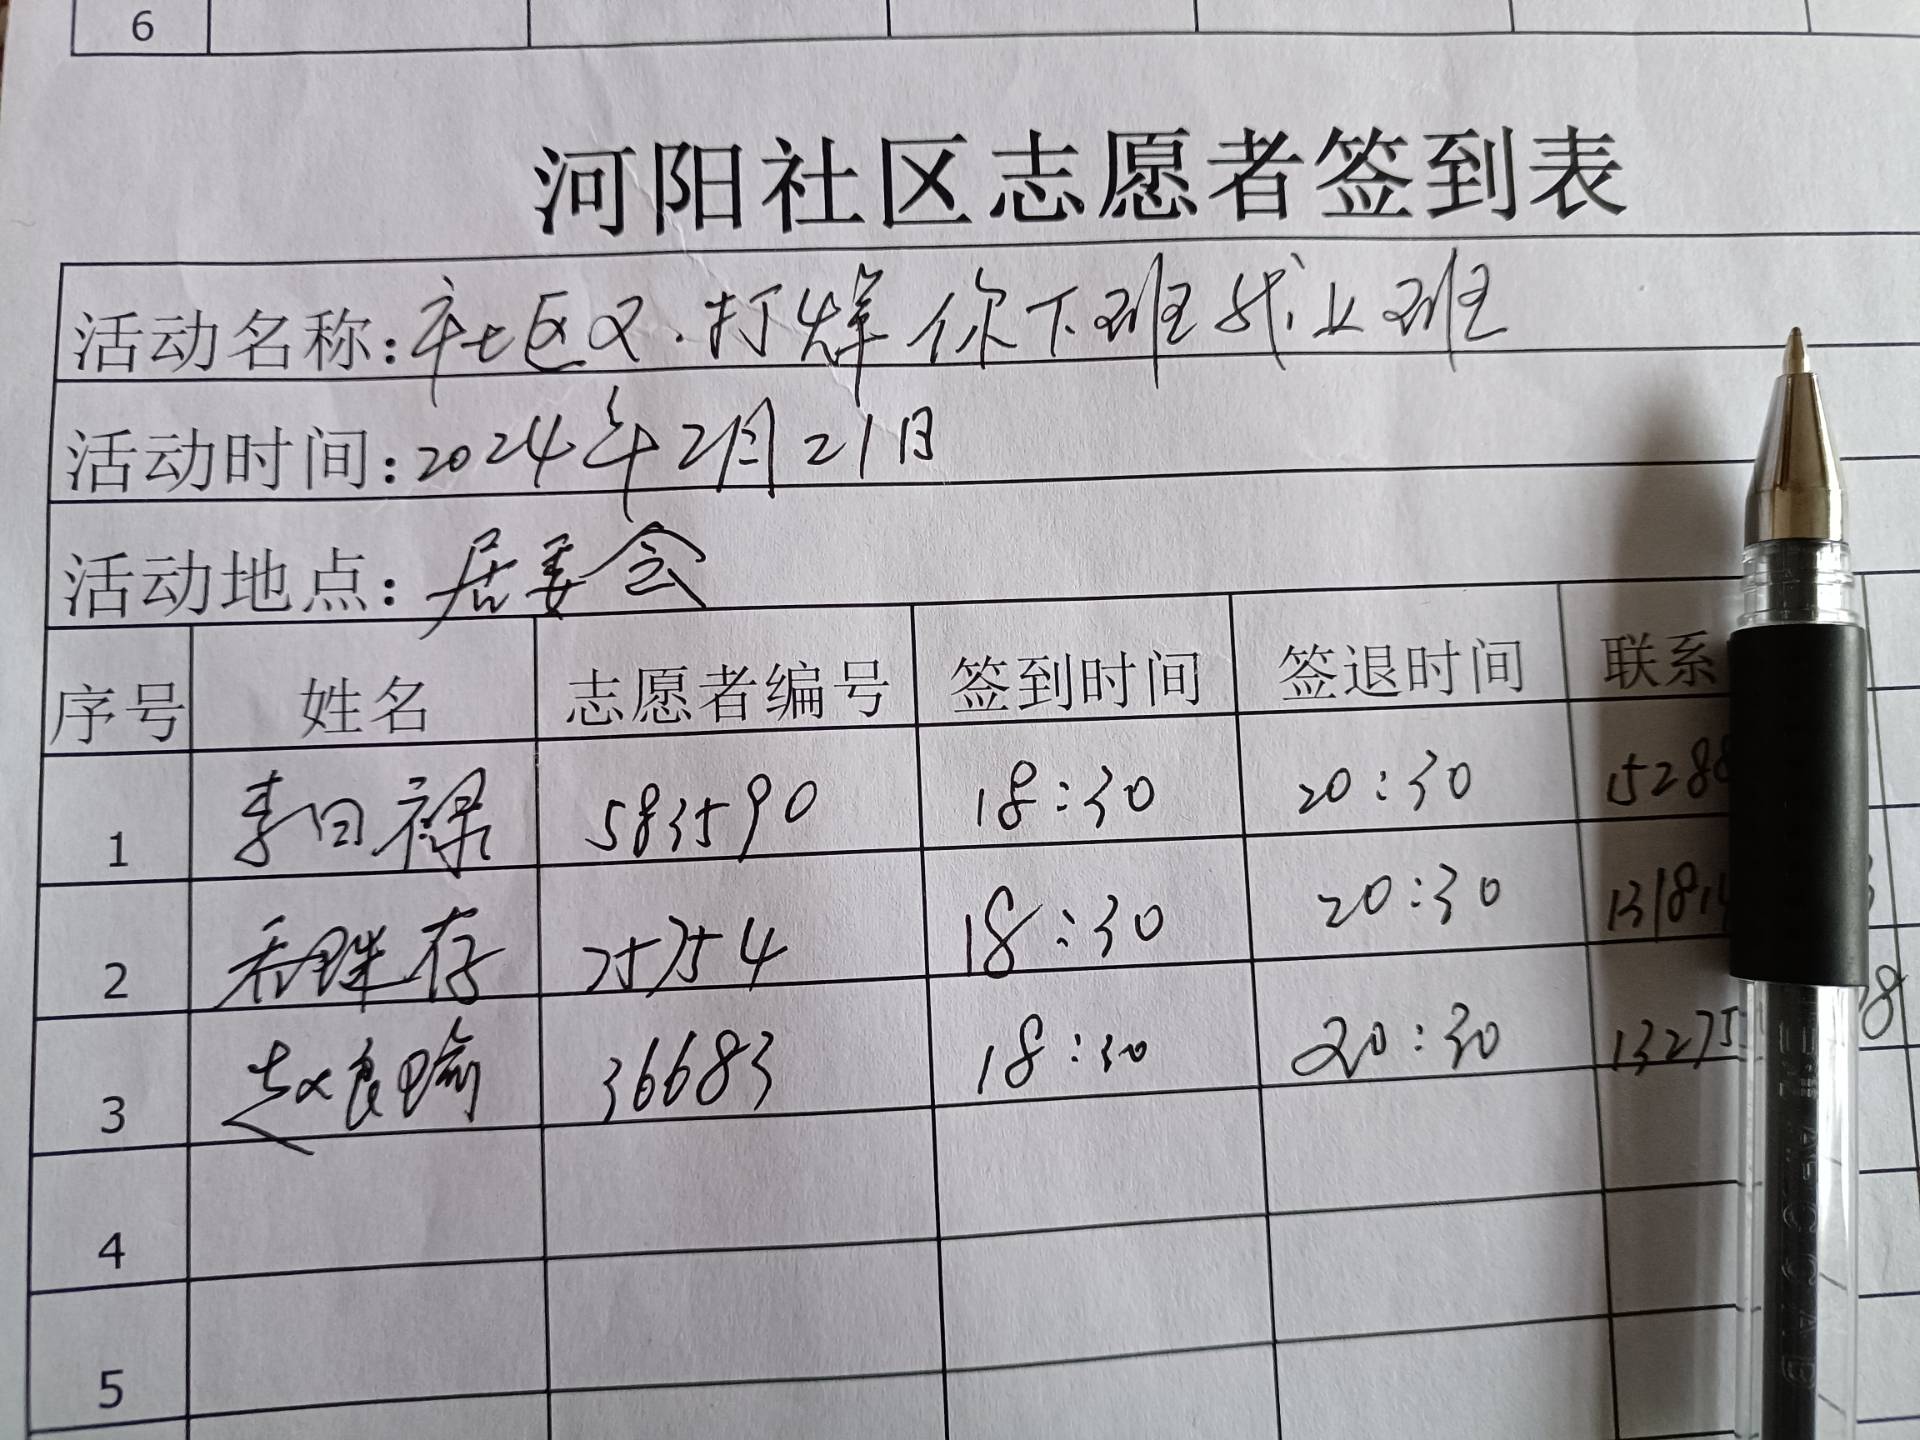 6
河阳社区志愿者签到表
活动名称:社区不打烊 你下班我上班
活动时间:2024年2月21日
活动地点:居委会
序号 姓名 志愿者编号 签到时间 签退时间 联系
1 李日禄 583590 18:30 20:30 15288
2 存 25754 18:30 20:30 13181
3 赵良瑜 36683 18:30 20:30 13275 8
4
5